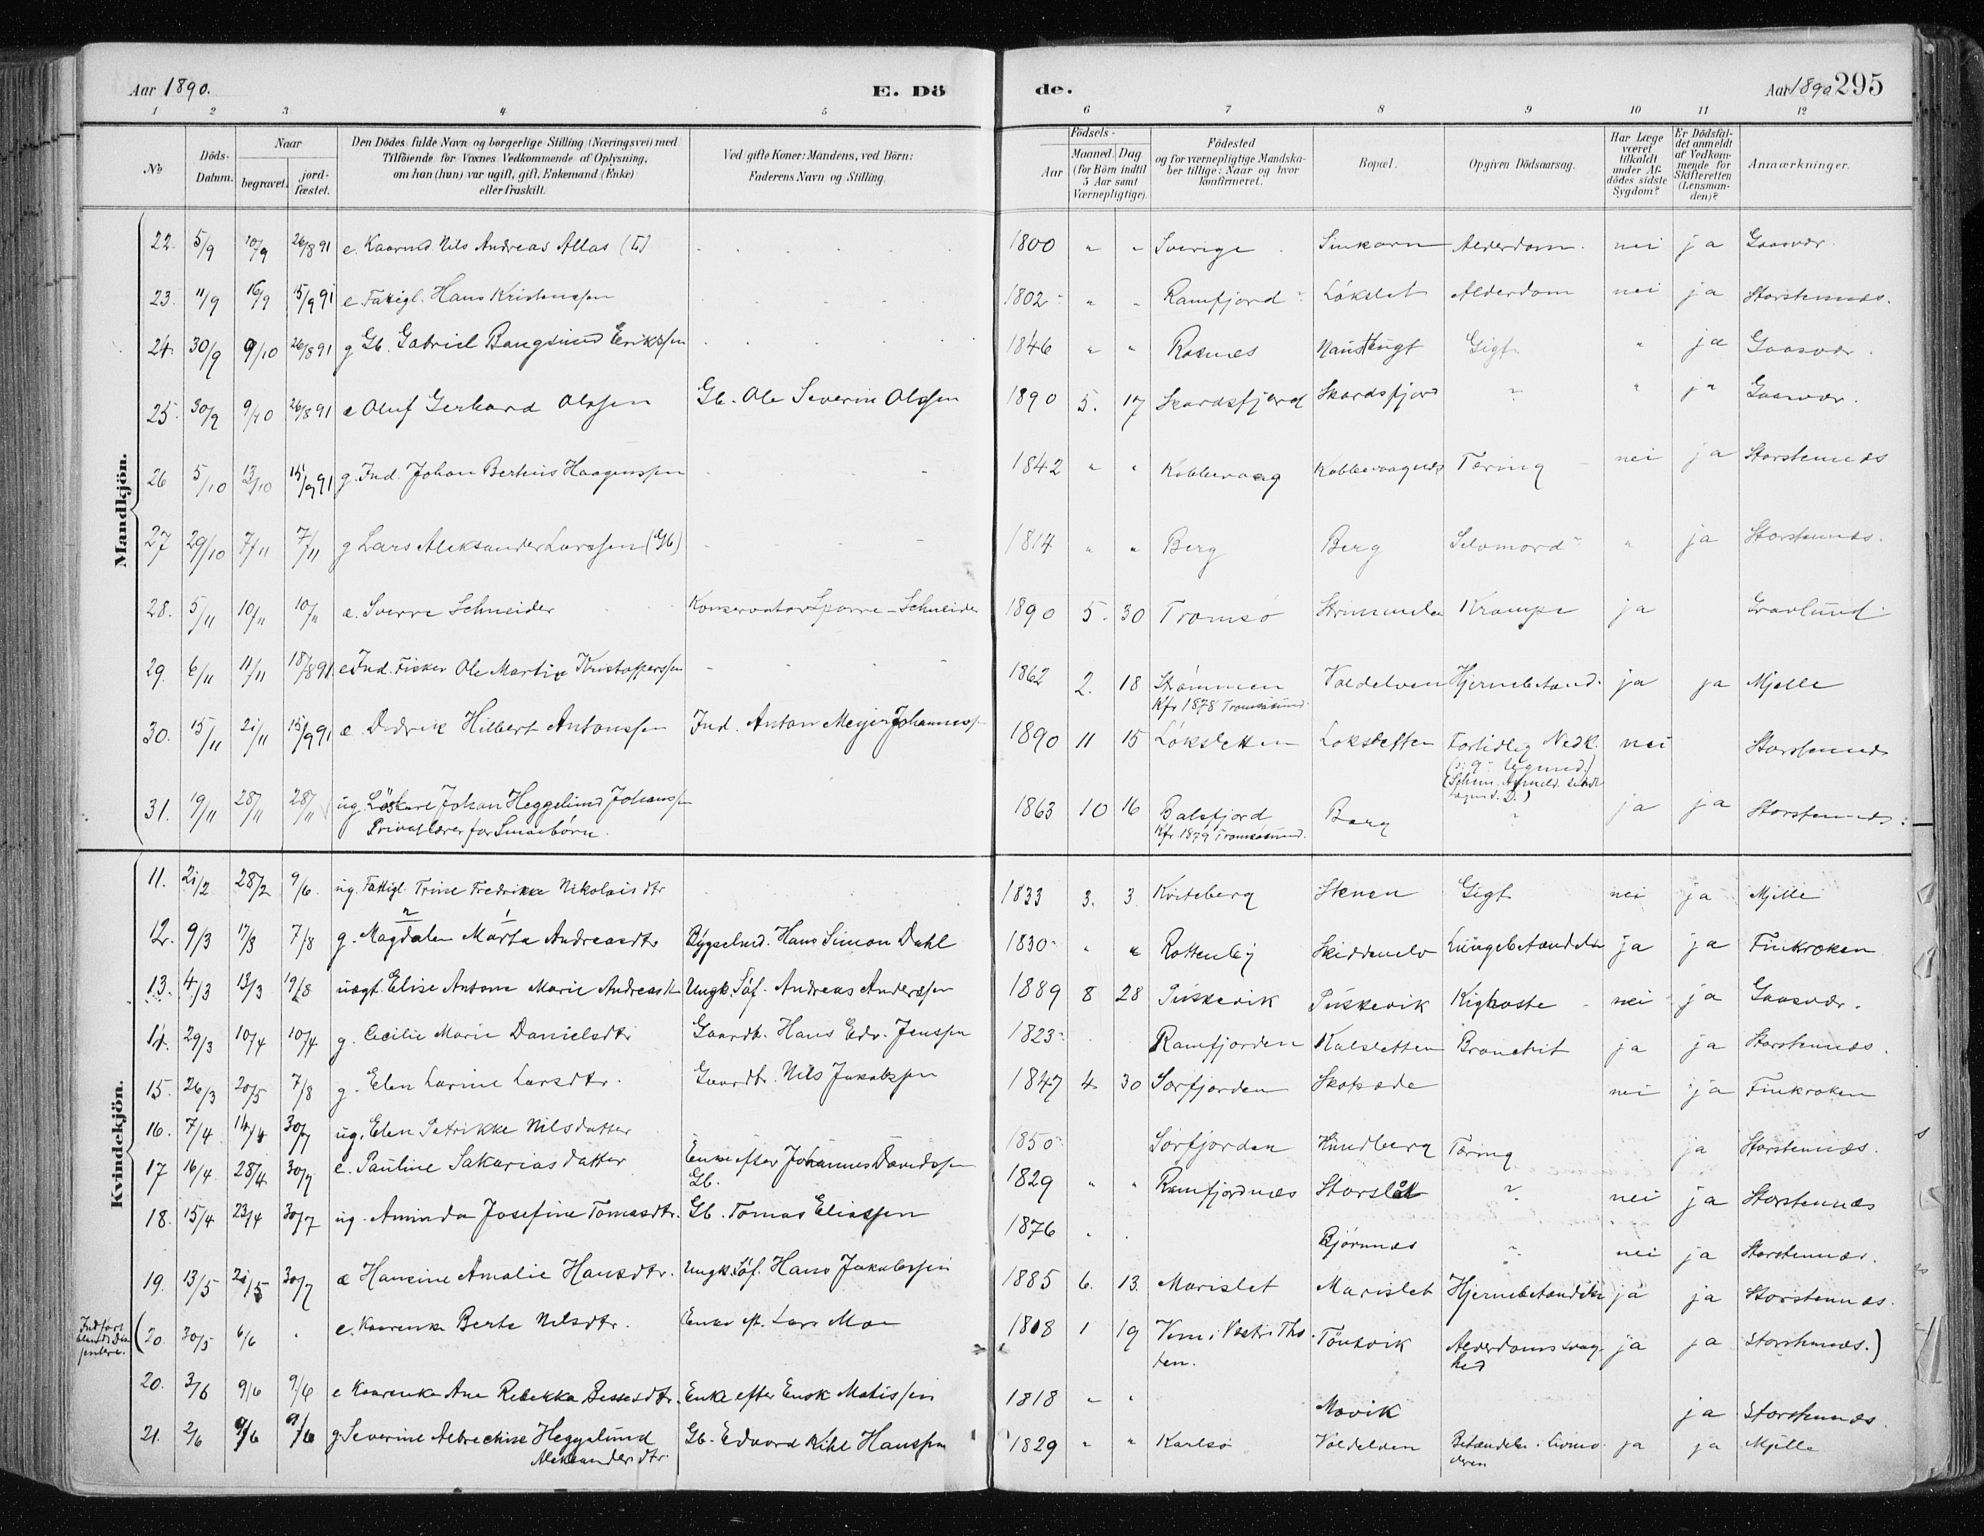 Aar 1890. E. Dö
de. Aar 1890 295
1 2 3 4 5 6 7 8 9 10 11 12
No
Döds-Datum.
Naar
begravet.
jord-fæstet.
Den Dödes fulde Navn og borgerlige Stilling (Næringsvei) med
Tilföiende for Voxnes Vedkommende af Oplysning,
om han (hun) var ugift, gift, Enkemand (Enke)
eller fraskilt.
Ved gifte Koner: Mandens, ved Börn:
Faderens Navn og Stilling.
Födsels-
Aar
Maaned. Dag
(for Börn indtil
5 Aar samt
Værnepligtige).
Födested
og for værnepligtige Mandska-
ber tillige: Naar og hvor
konfirmeret.
Bopæl.
Opgiven Dödsaarsag.
Har Læge
været
tilkaldt
under Af-
dödes sidste
Sygdom?
Er Dödsfal-
det anmeldt
af Vedkom-
mende for
Skifteretten
(Lensman-
den)?
Anmærkninger.
Mandkjön.
22. 5/9 10/9 26/8 91 e Kaarmd Nils Andreas Allas (L) 1800 " " Sverige Alderdom nei ja Gaasvær.
23. 11/9 16/9 15/9 91 e Fattigl. Hans Kristenssen 1802 " " Ramfjord Løkslet Alderdom nei ja Storstennæs.
24. 30/9 9/10 26/8 91 g Gb. Gabriel Bangsund Erikssen 1846 " " Gigt " ja Gaasvær.
25. 30/9 9/10 26/8 91 e Oluf Gerhard Olssen Gb. Ole Severin Olssen 1890 5. 17 Skardsfjord Skardsfjord ? " ja Gaasvær.
26 5/10 13/10 15/9 91 g. Ind. Johan Berthus Haagenssen 1842 " " Kobbevaag Kobbevaagnæs Tæring nei ja Storstennæs
27 29/10 7/11 7/11 g Lars Aleksander Larssen (Gb) 1814 " " Berg Berg Selvmord " ja Storstennæs.
28. 5/11 10/11 10/11 e. Sverre Schneider Konservator Sparre-Schneider 1890 5. 30 Tromsø Strimmelen Krampe ja Gravlund
29. 6/11 11/11 18/8 91 e Ind. Fisker Ole Martin Kristofferssen 1862 2. 18 Strømmen Kfr 1878 Tromsøsund. Valdelven Hjernebetænd. ja ja Mjelle
30. 15/11 21/11 15/9 91 e. Didrik Hilbert Antonssen Ind. Anton Meyer Johanness. 1890 11 15 Løksletten Løksletten Fortidlig Nedk. nei Storstennæs
31. 19/11 28/11 28/11 ug. Johan Heggelund Johanssen 1863 10 16 Balsfjord Berg ? ja ja Storstennæs.
Privatlærer for Smaabørn. Kfr 1879 Tromsøsund.
Kvindekjön.
11. 21/2 28/2 9/6. ug. Fattigl. Trine Fredrikke Nikolaisdtr 1833 3. 3. Kviteberg Stenen Gigt nei ja Mjelle
12. 9/3 17/3 7/8 g. Magdalen Marta Andreasdtr Bygselmd. Hans Simon Dahl 1830 " " Rottenby Skiddenelv Lungebetændelse ja ja Finkroken
13. 4/3 13/3 19/8 uægt. Elise Antone Marie Andreasdtr Ungk. Løf. Andreas Anderssen 1889 8 28 Kighoste nei ja Gaasvær.
14. 29/3 10/4 10/4 g. Cecilie Marie Danielsdtr Gaardbr. Hans Edv. Jenssen 1823 Ramfjorden Kalsletten Bronchit ja ja Storstennæs.
15. 26/3 20/5 7/8 g. Elen Larine Larsdtr. Gaardbr. Nils Jakobssen 1847 4 30 Sørfjorden nei ja Finkroken
16. 7/4 14/4 30/7 ug. Elen Petrikke Nilsdatter 1850 Sørfjorden Hundberg Tæring ja Storstennæs.
17 16/4 28/4 30/7 e. Pauline Sakariasdatter Enke efter Johannes Davidssen Gb. 1829 " " Ramfjordnæs Storslæt ? nei ja Storstennæs
18. 15/4 23/4 30/7 ug. Aminda Josefine Tomasdtr. Gb. Tomas Eliassen 1876 Bjørnnæs " nei ja Storstennæs.
19. 13/5 21/5 30/7 e Hansine Amalie Hansdtr. Ungk. Løf. Hans Jakobssen 1885 6. 13. Marislet Marislet Hjernebetændelse ja ja Storstennæs.
Indført
(20. 30/5 6/6 e. Kaarenke Berte Nilsdtr. Enke eft. Lars Moe 1818 1 19 Vem i Vestri Tho- Tønsvik Alderdomssvag- ja ja Storstennæs.)
ten. hed
20. 3/6 9/6 9/6 e Kaarenke Ane Rebekka Enke efter Ensk Matissen 1818 " " Movik ja Storstennæs.
21. 2/6 9/6 9/6 g Severine Albrechine Heggelund Gb. Edvard Kihl Hanssen 1829 " " Karlsø Valdelven Betændelse i Livmo- ja ja Mjelle
Aleksandersdtr. deren